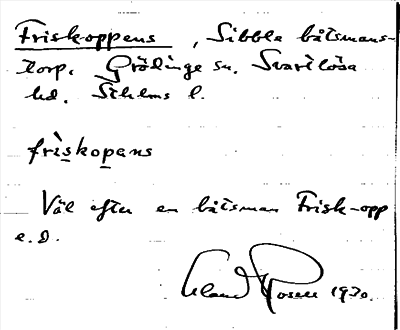 Friskoppens, Sibbla båtsmans-
torp. Grödinge sn. Svartlösa
hd. Sthlms l.
friskopans
Väl efter en båtsman Frisk-opp
e.d.
Erland Rosell 1970.